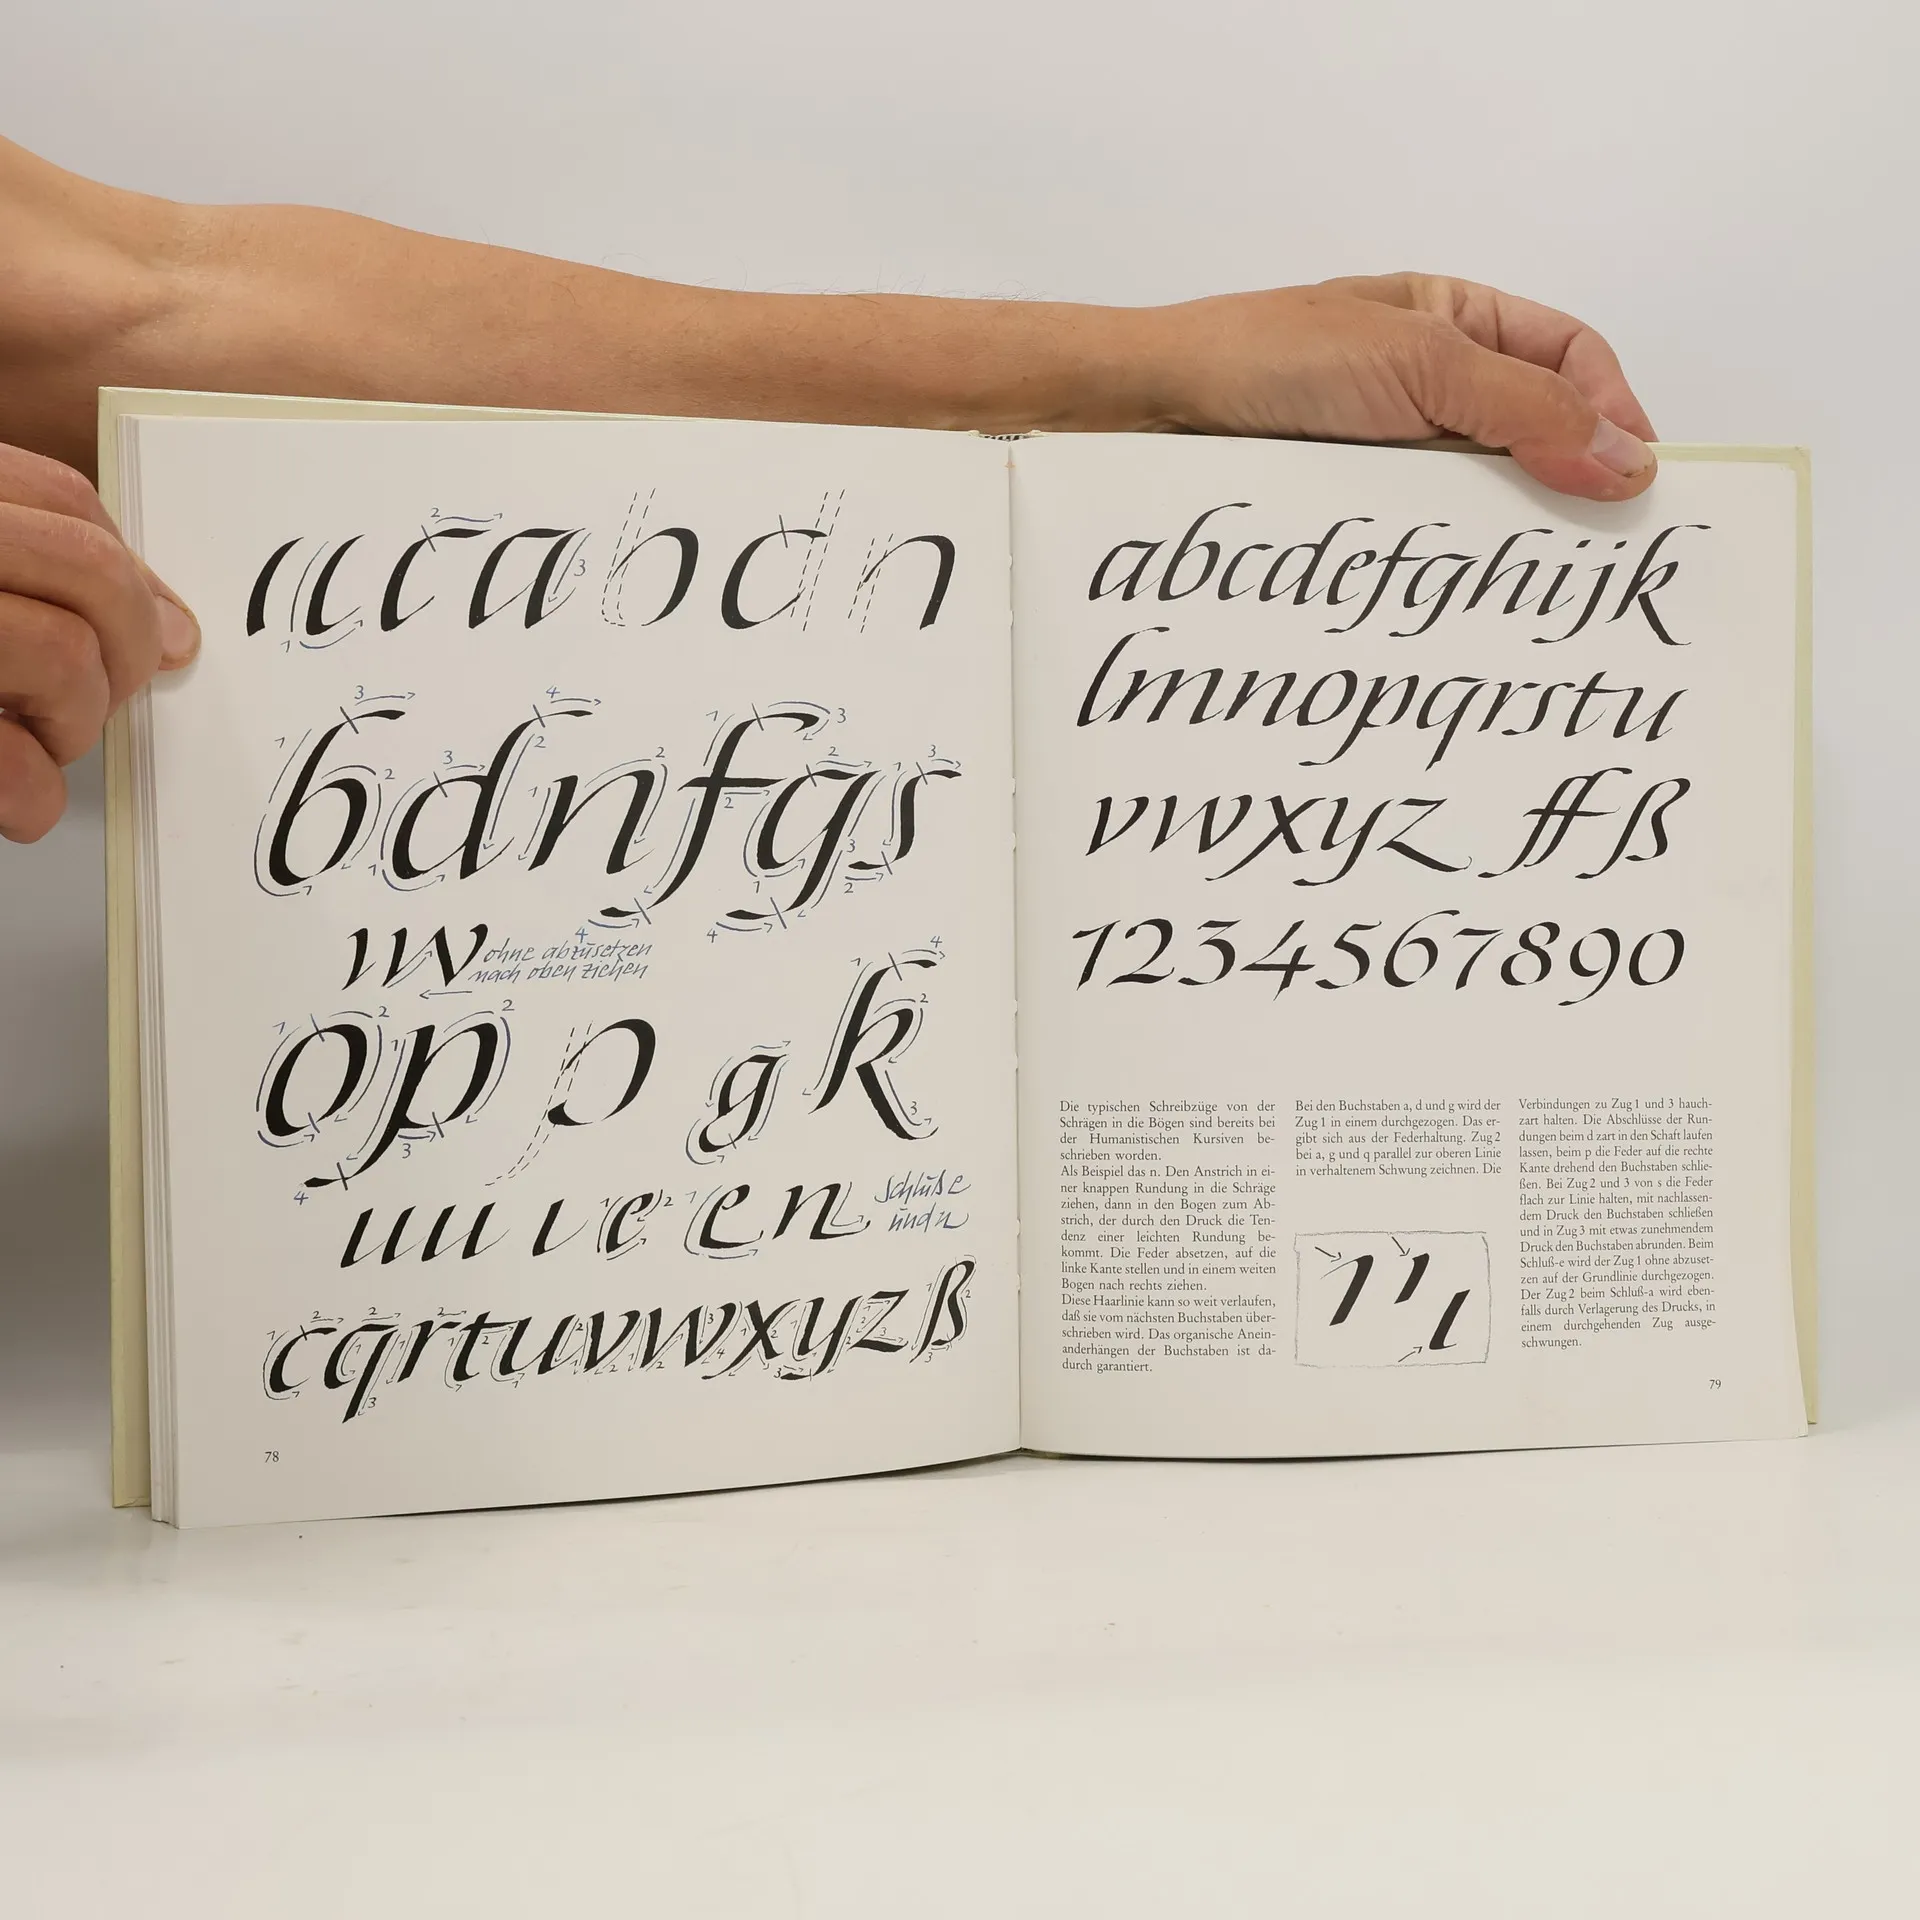 ııcabdn
bdnfgs
ıw ohne abzusetzen
nach oben ziehen
oppgk
ıııı ı e en Schluß e
und n
cqrtuvwxyzß
78
abcdefghijk
lmnopqrstu
vwxyz ff ß
1234567890
Die typischen Schreibzüge von der
Schrägen in die Bögen sind bereits bei
der Humanistischen Kursiven be-
schrieben worden.
Als Beispiel das n. Den Anstrich in ei-
ner knappen Rundung in die Schräge
ziehen, dann in den Bogen zum Ab-
strich, der durch den Druck die Ten-
denz einer leichten Rundung be-
kommt. Die Feder absetzen, auf die
linke Kante stellen und in einem weiten
Bogen nach rechts ziehen.
Diese Haarlinie kann so weit verlaufen,
daß sie vom nächsten Buchstaben über-
schrieben wird. Das organische Anein-
anderhängen der Buchstaben ist da-
durch garantiert.
Bei den Buchstaben a, d und g wird der
Zug 1 in einem durchgezogen. Das er-
gibt sich aus der Federhaltung. Zug 2
bei a, g und q parallel zur oberen Linie
in verhaltenem Schwung zeichnen. Die
Verbindungen zu Zug 1 und 3 hauch-
zart halten. Die Abschlüsse der Run-
dungen beim d zart in den Schaft laufen
lassen, beim p die Feder auf die rechte
Kante drehend den Buchstaben schlie-
ßen. Bei Zug 2 und 3 von s die Feder
flach zur Linie halten, mit nachlassen-
dem Druck den Buchstaben schließen
und in Zug 3 mit etwas zunehmendem
Druck den Buchstaben abrunden. Beim
Schluß-e wird der Zug 1 ohne abzuset-
zen auf der Grundlinie durchgezogen.
Der Zug 2 beim Schluß-a wird eben-
falls durch Verlagerung des Drucks, in
einem durchgehenden Zug ausge-
schwungen.
79